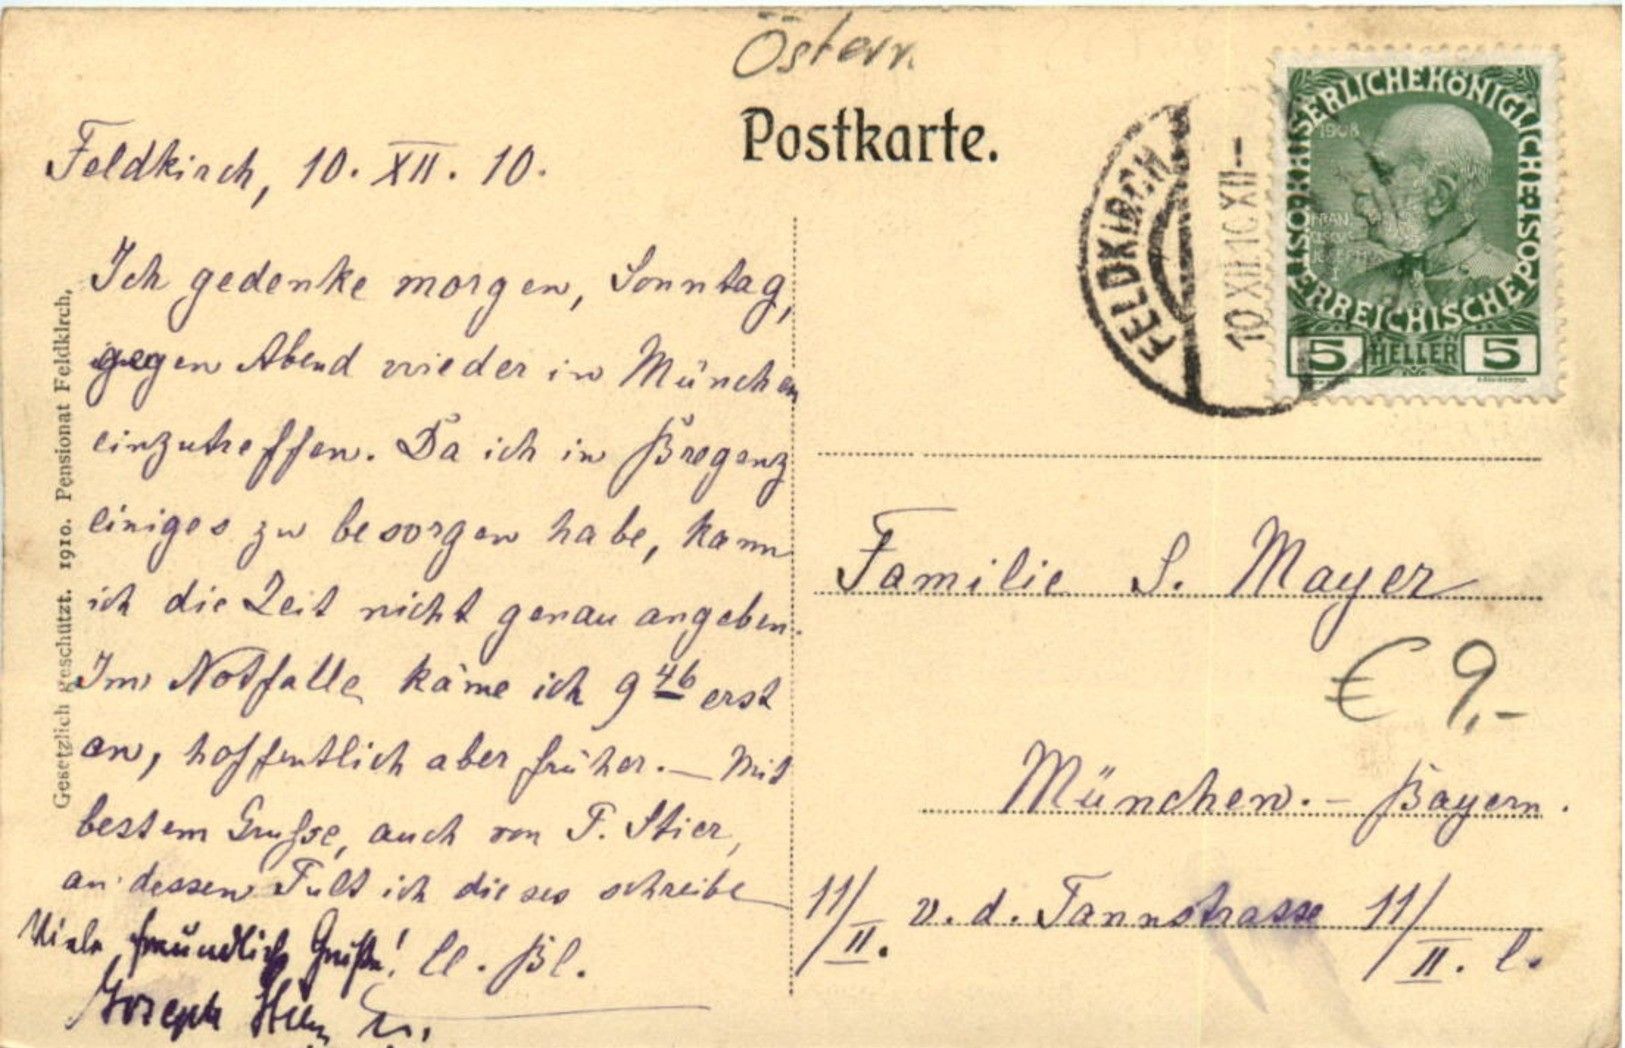 Österr.
Postkarte.
Feldkirch, 10. XII. 10.
Ich gedenke morgen, Sonntag,
gegen Abend wieder in München
einzutreffen. Da ich in Bregenz
einiges zu besorgen habe, kann
ich die Zeit nicht genau angeben.
Im Notfalle käme ich 9 46 erst
an, hoffentlich aber früher. — Mit
bestem Grusse, auch von F. Stier,
an dessen Pult ich dieses schreibe
Viele freundlich Grüße! Cl. Bl.
Joseph
Gesetzlich geschützt. 1910. Pensionat Feldkirch,
FELDKIRCH
10 XII 10 XII-
KAISERLICHE KÖNIGLICHE ÖSTERREICHISCHE POST
1908
FRANZ
JOSEPH I
5 HELLER 5
Familie S. Mayer
€ 9,-
München. - Bayern.
11/II. v. d. Tannstrasse 11/II. l.